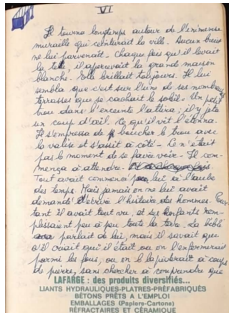 VI
Il tourna longtemps autour de l'immense
muraille qui ceinturait la ville. Aucun bruit
ne lui parvenait. Chaque fois qu'il levait
la tête, il apercevait la grande maison
blanche. Elle brillait toujours. Il lui
sembla que c'était sur l'une de ses nombreuses
terrasses que se couchait le soleil. Un petit
trou dans l'enceinte l'attira, il y jeta
un coup d'œil. Ce qu'il vit l'atterra.
Il s'empressa de boucher le trou avec
la valise et s'assit à côté. Ce n'était
pas le moment de se faire voir. Il com-
mença à attendre.
Tout avait commencé
des temps. Mais jamais on ne lui avait
demandé d'écrire l'histoire des hommes. Pour
tant il avait tout vu, et ses enfants
peu à peu toute la terre.
parlait de lui, mais il savait que
s'il criait qui il était ou on l'enfermerait
parmi les fous, ou on le lapiderait à coups
de pierres, sans chercher à comprendre que
LAFARGE : des produits diversifiés...
LIANTS HYDRAULIQUES-PLATRES-PRÉFABRIQUÉS
BÉTONS PRÊTS A L'EMPLOI
EMBALLAGES (Papiers-Cartons)
RÉFRACTAIRES ET CÉRAMIQUE